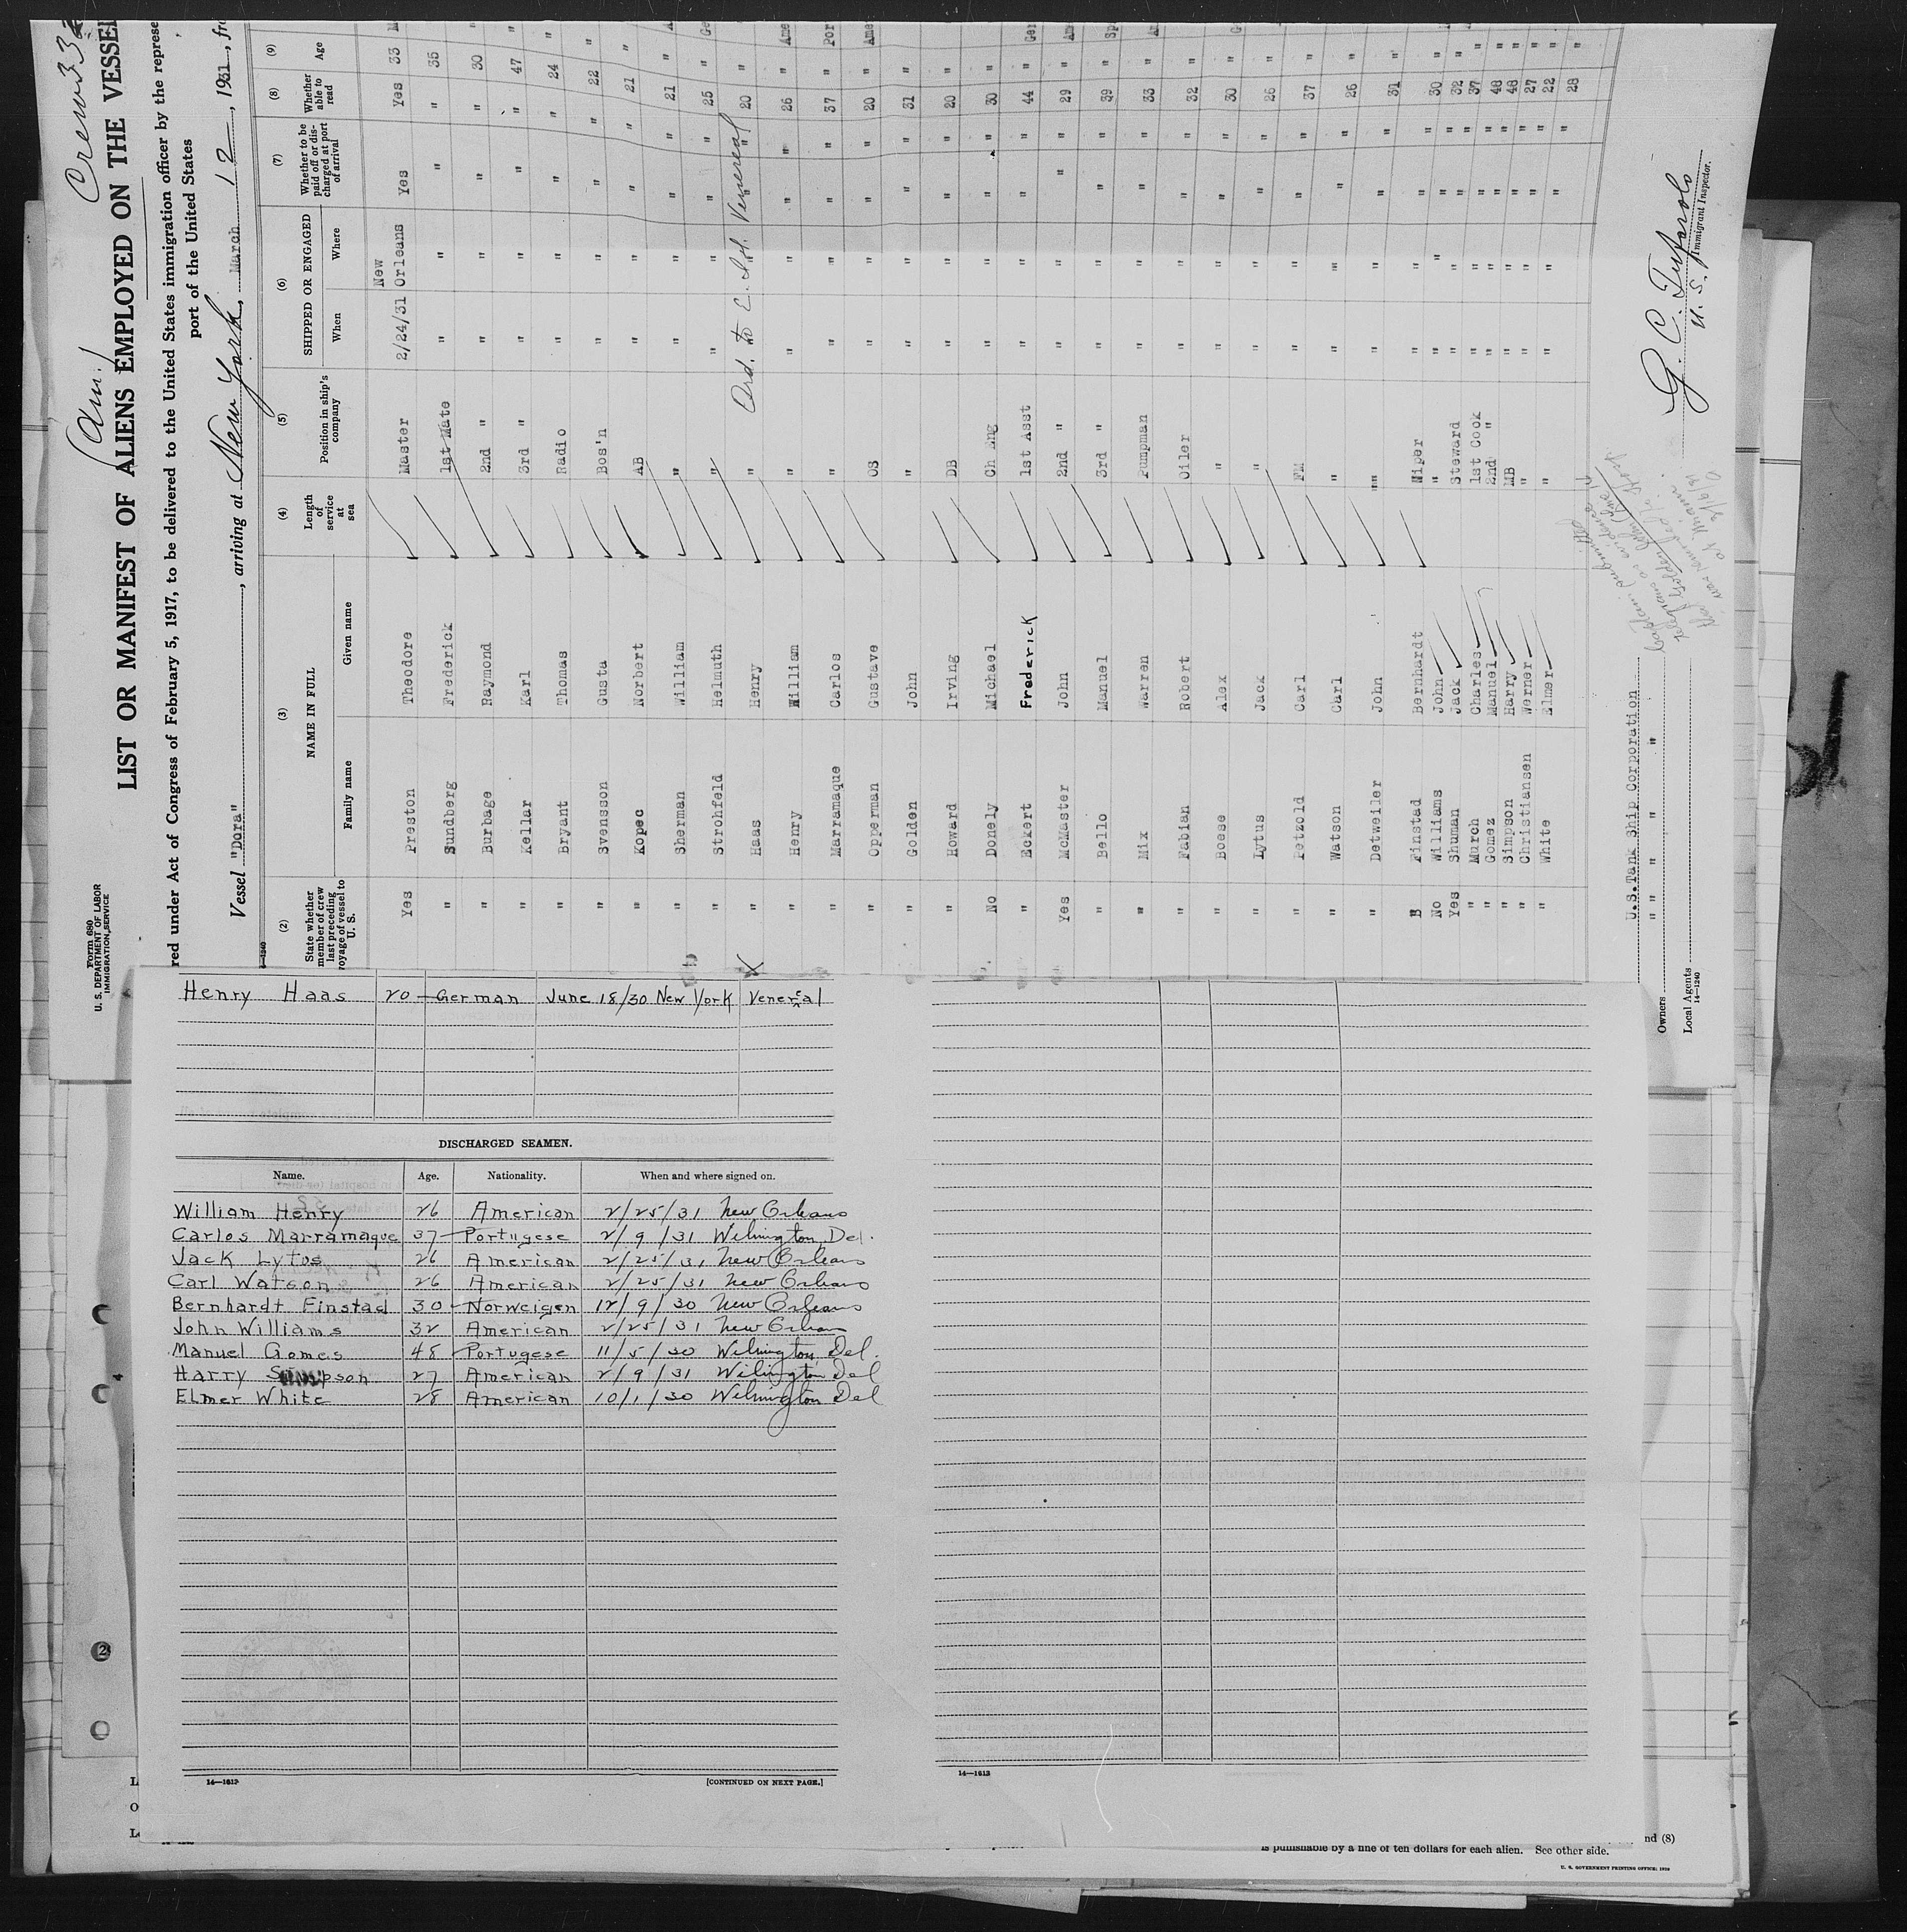 Form 680
U. S. DEPARTMENT OF LABOR
IMMIGRATION SERVICE
(Am.)
Crew 33
LIST OR MANIFEST OF ALIENS EMPLOYED ON THE VESSEL
red under Act of Congress of February 5, 1917, to be delivered to the United States immigration officer by the represe
port of the United States
Vessel "Dora" , arriving at New York, March 12, 1931, fr
(2) (3) (4) (5) (6) (7) (8) (9)
State whether member of crew last preceding voyage of vessel to U. S. NAME IN FULL Length of service at sea Position in ship's company SHIPPED OR ENGAGED Whether to be paid off or discharged at port of arrival Whether able to read Age
Family name Given name When Where
Yes Preston Theodore Master 2/24/31 New Orleans Yes Yes 33
" Sundberg Frederick 1st Mate " " " " 35
" Burbage Raymond 2nd " " " " " 30
" Kellar Karl 3rd " " " " " 47
" Bryant Thomas Radio " " " " 24
" Svensson Gusta Bos'n " " " " 22
" Kopec Norbert AB " " " " 21
" Sherman William " " " " " 21
" Strohfeld Helmuth " " " " " 25
" Haas Henry " Ord. to E. Isl. Venereal " 20
" Henry William " " " " " 26
" Marramaque Carlos " " " " " 37
" Opperman Gustave OS " " " " 20
" Golden John " " " " " 31
" Howard Irving DB " " " " 20
No Donely Michael Ch Eng " " " " 30
" Eckert Frederick 1st Asst " " " " 44
Yes McMaster John 2nd " " " " " 29
" Bello Manuel 3rd " " " " " 39
" Mix Warren Pumpman " " " " 33
" Fabian Robert Oiler " " " " 32
" Boese Alex " " " " " 30
" Lytus Jack " " " " " 26
" Petzold Carl FM " " " " 37
" Watson Carl " " " " " 26
" Detweiler John " " " " " 31
" Finstad Bernhardt Wiper " " " " 30
No Williams John " " " " " 32
Yes Shuman Jack Steward " " " " 37
" Murch Charles 1st Cook " " " " 48
" Gomez Manuel 2nd " " " " " 48
" Simpson Harry MB " " " " 27
" Christiansen Werner " " " " " 22
" White Elmer " " " " " 28
Owners U.S.Tank Ship Corporation
Local Agents " " " " "
14—1240
U. S. Immigrant Inspector.
Henry Haas 20 German June 18/30 New York Venereal
DISCHARGED SEAMEN.
Name. Age. Nationality. When and where signed on.
William Henry 26 American 2/25/31 New Orleans
Carlos Marramaque 37 Portugese 2/9/31 Wilmington Del.
Jack Lytus 26 American 2/25/31 New Orleans
Carl Watson 26 American 2/25/31 New Orleans
Bernhardt Finstad 30 Norweigen 12/9/30 New Orleans
John Williams 32 American 2/25/31 New Orleans
Manuel Gomes 48 Portugese 11/5/30 Wilmington Del.
Harry Simpson 27 American 2/9/31 Wilington Del
Elmer White 28 American 10/1/30 Wilmington Del
14—1613
[CONTINUED ON NEXT PAGE.]
14—1613
nd (8)
is punishable by a fine of ten dollars for each alien. See other side.
U. S. GOVERNMENT PRINTING OFFICE: 1930